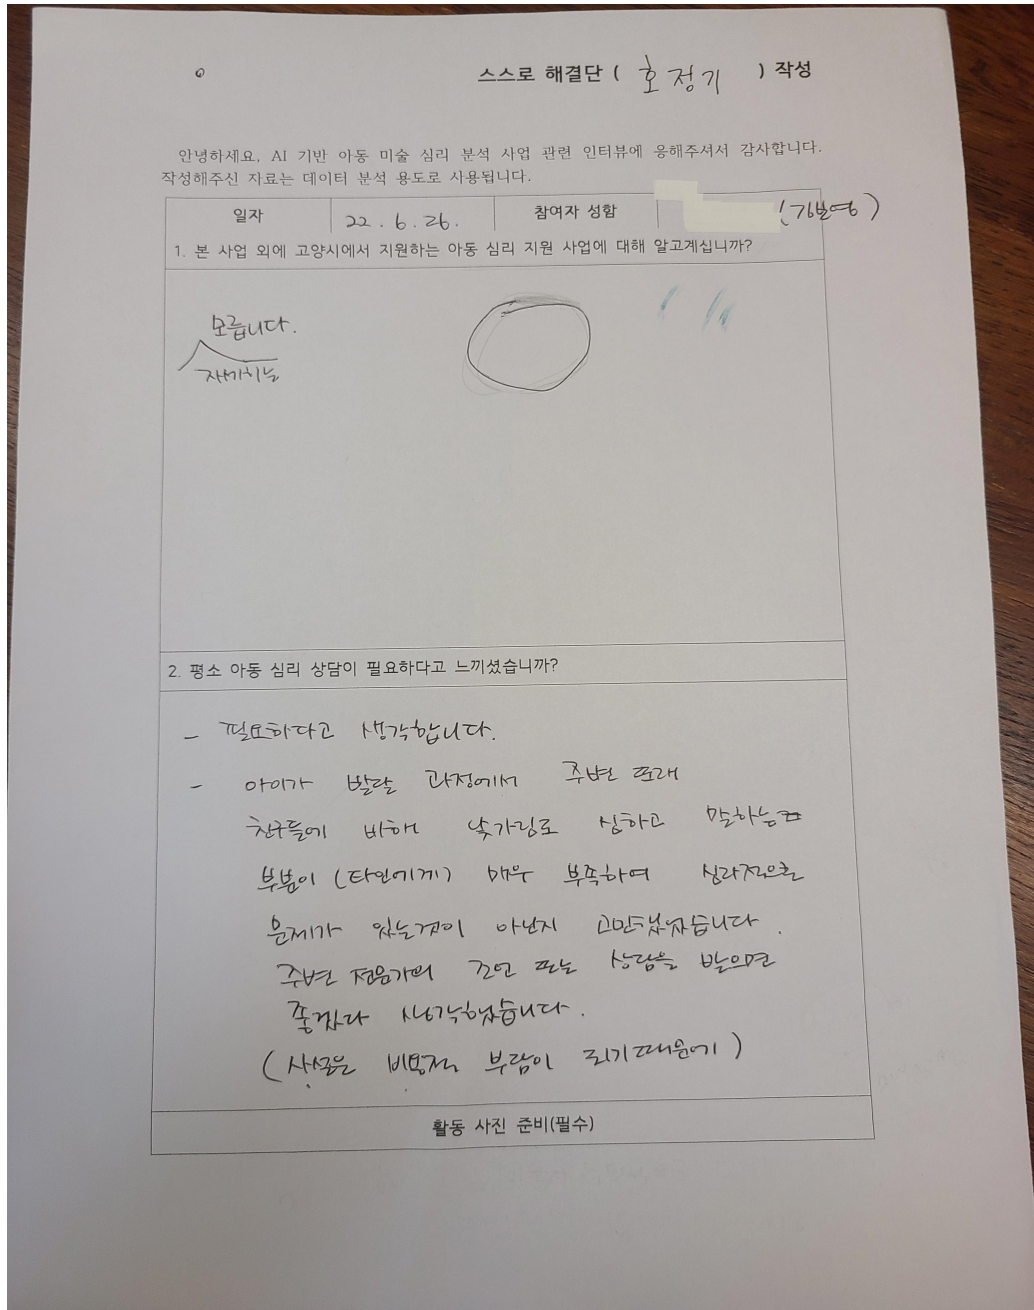 스스로 해결단 ( 호정기 ) 작성
안녕하세요, AI 기반 아동 미술 심리 분석 사업 관련 인터뷰에 응해주셔서 감사합니다.
작성해주신 자료는 데이터 분석 용도로 사용됩니다.
일자 22. 6. 26. 참여자 성함
1. 본 사업 외에 고양시에서 지원하는 아동 심리 지원 사업에 대해 알고계십니까?
모릅니다.
자세히는
2. 평소 아동 심리 상담이 필요하다고 느끼셨습니까?
- 필요하다고 생각합니다.
- 아이가 발달 과정에서 주변 또래
친구들에 비해 낯가림도 심하고 말하는
부분이 (타인에게) 매우 부족하여 심리적으로
문제가 있는것이 아닌지 고민했었습니다.
주변 전문가의 조언 또는 상담을 받으면
좋겠다 생각했었습니다.
(사설은 비용적 부담이 되기때문에)
활동 사진 준비(필수)